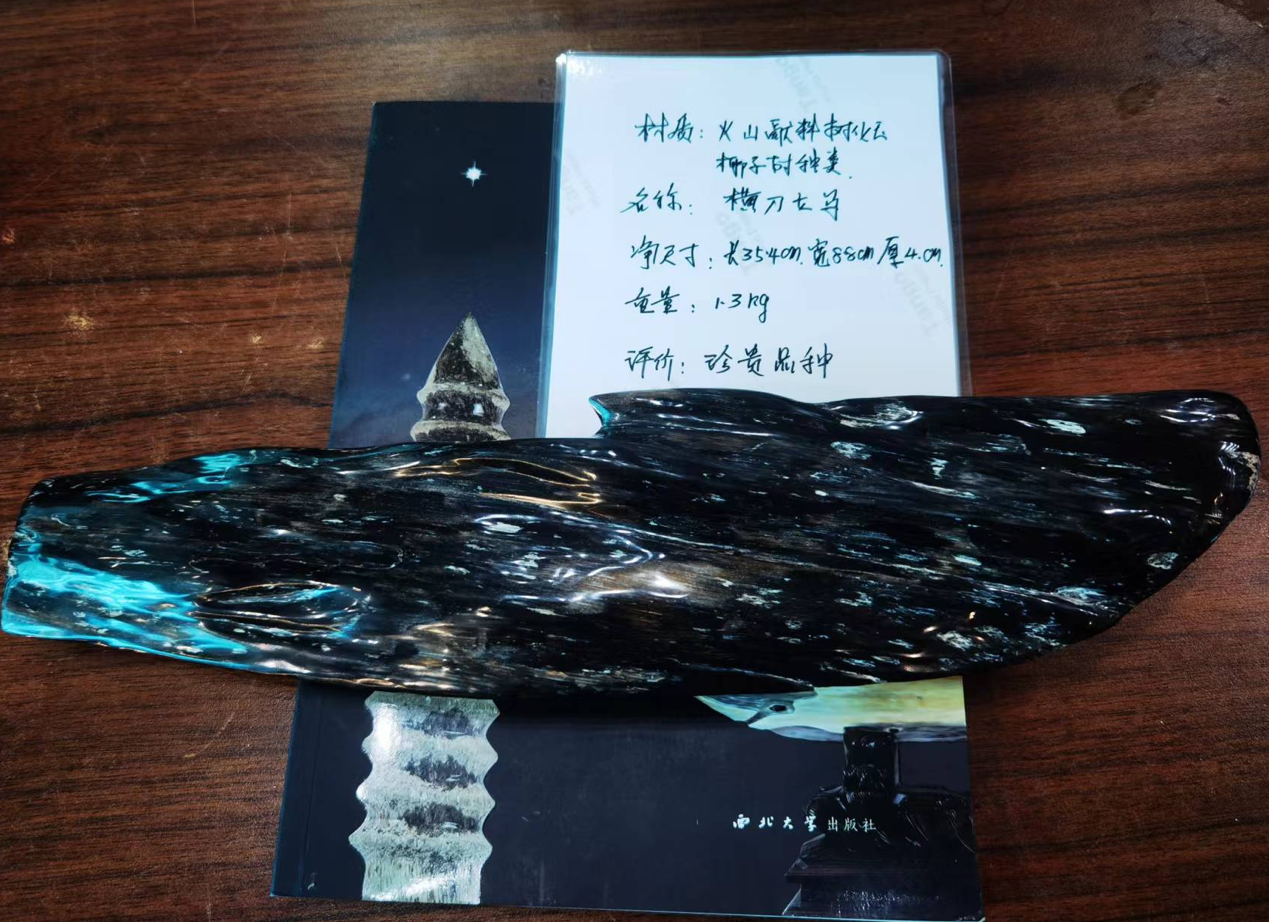 材质：火山料树化玉
椰子树种类.
名称：横刀立马
净尺寸：长35.4cm.宽8.8cm厚4.cm.
重量：1.3kg
评价：珍贵品种
西北大学出版社